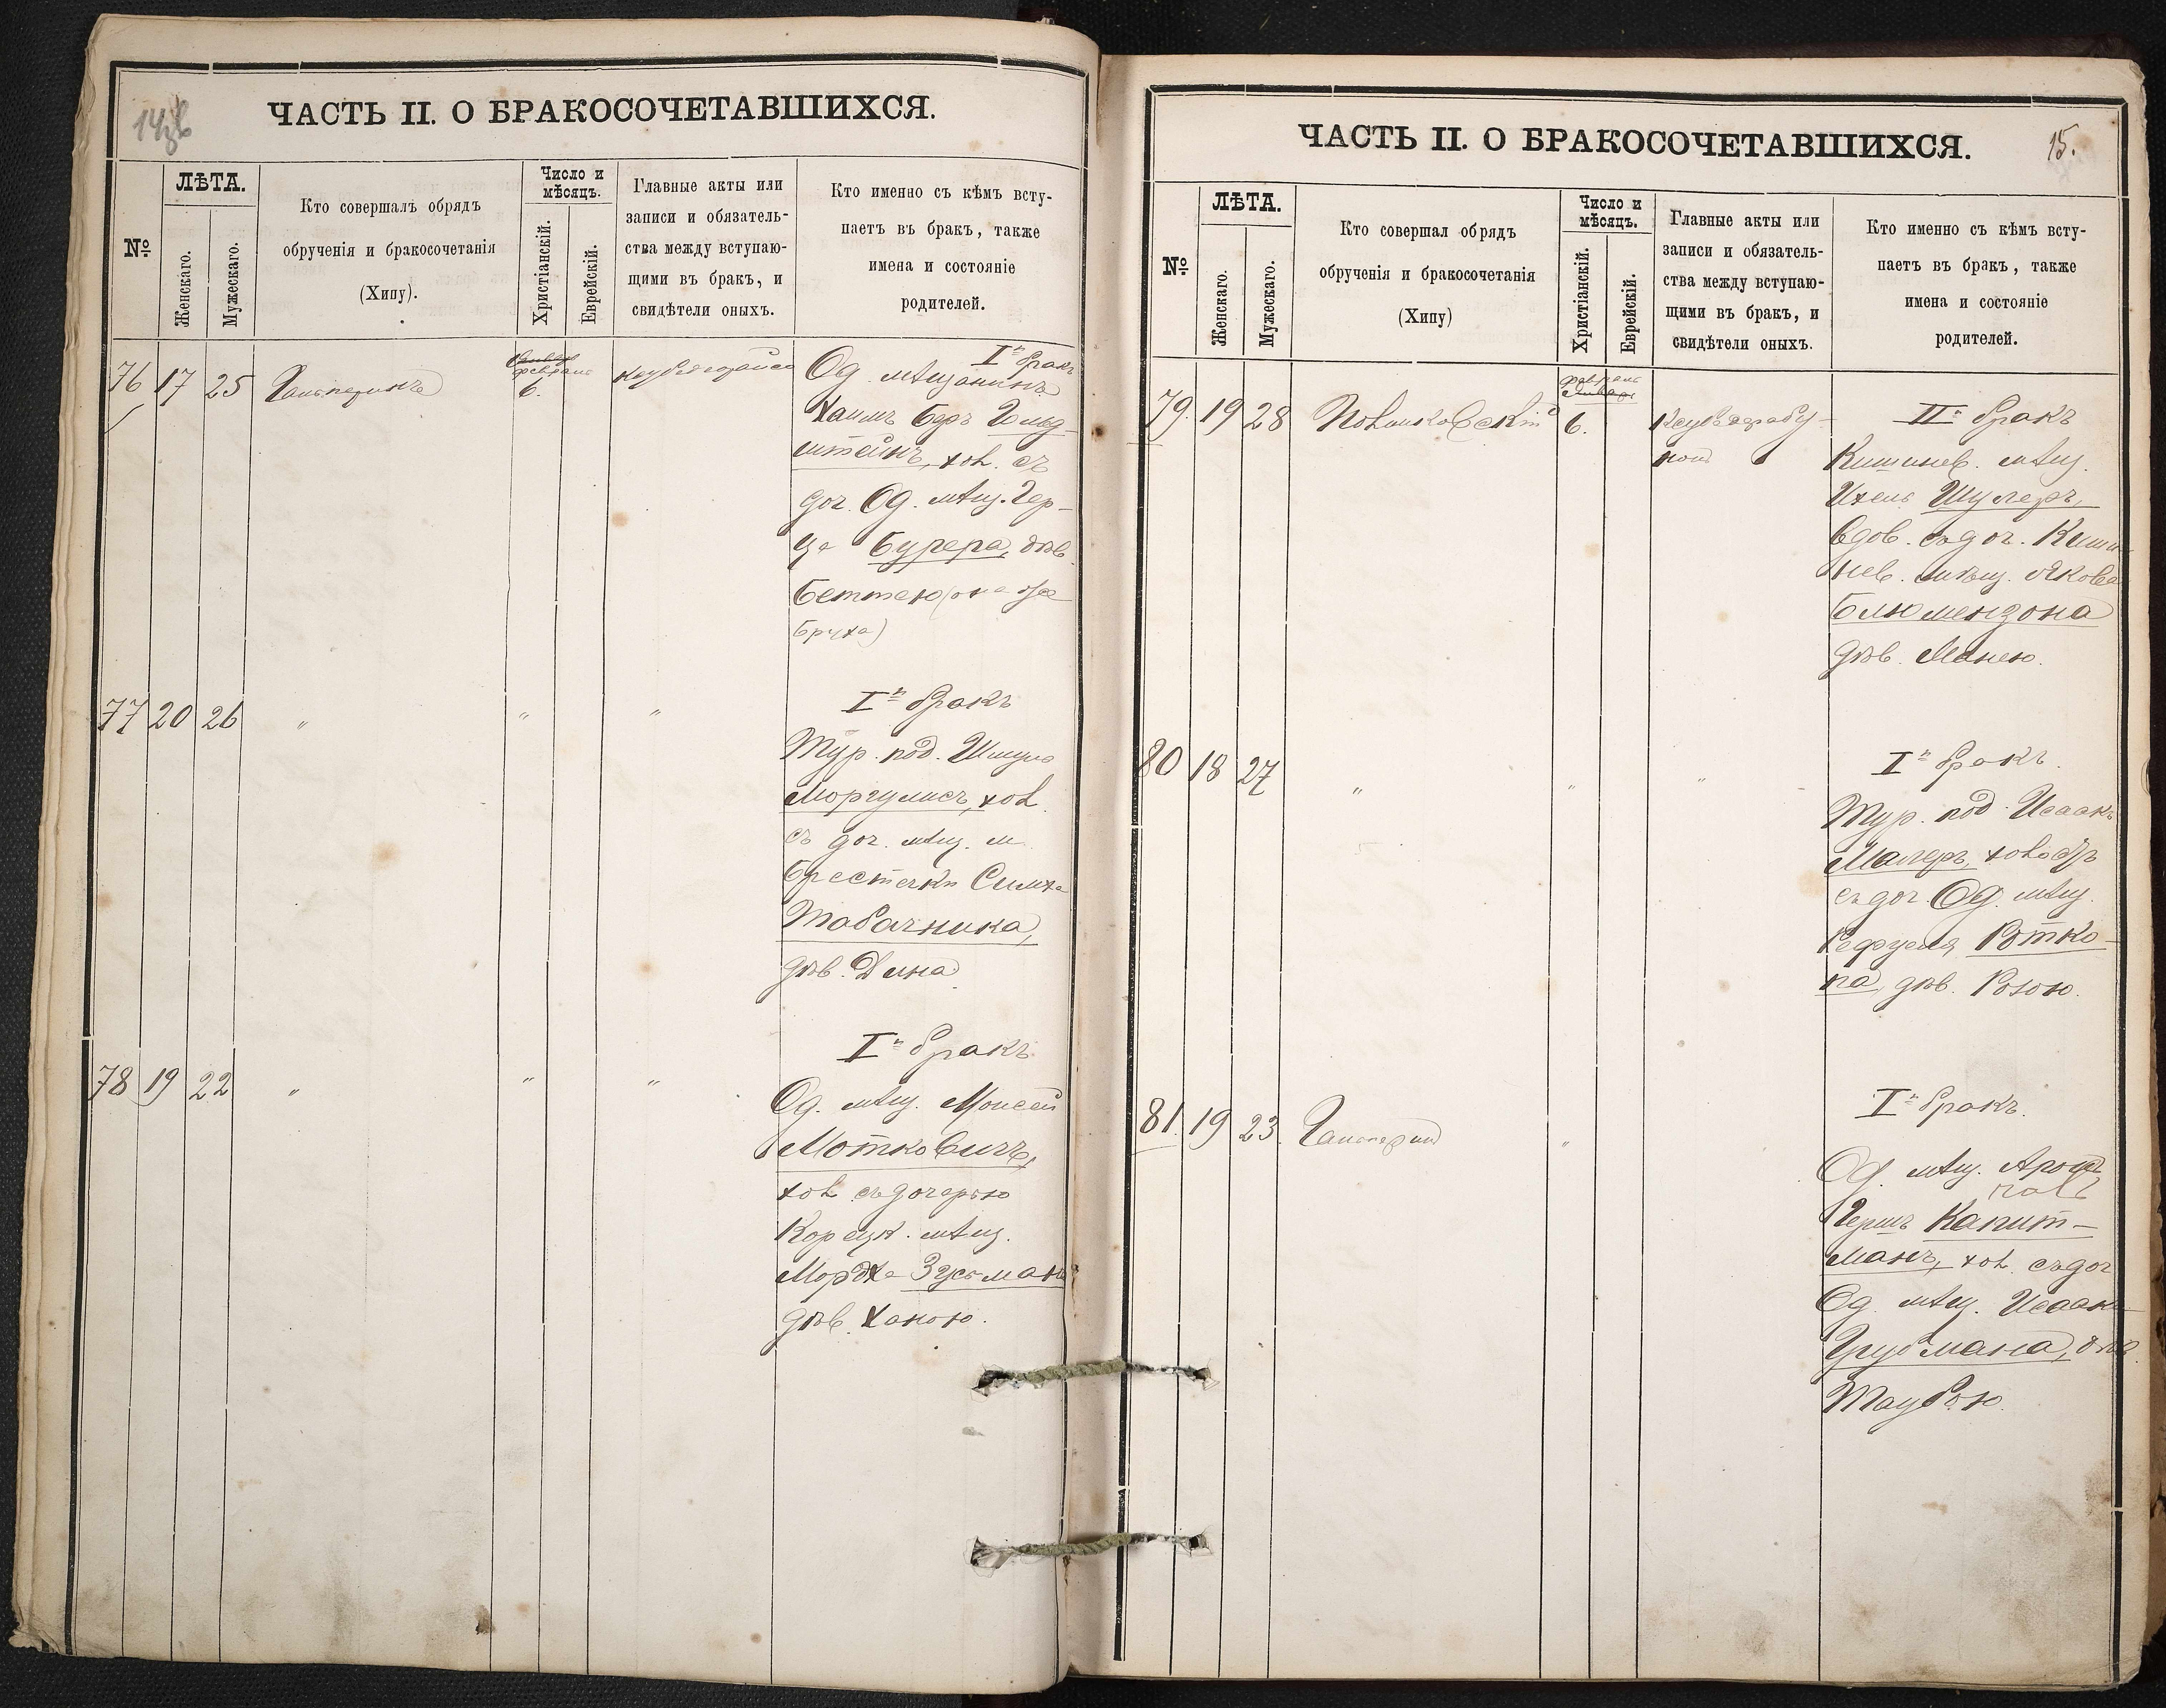 ЧАСТЬ II. О БРАКОСОЧЕТАВШИХСЯ.
№
ЛѢТА.
Женскаго.
Мужескаго.
Кто совершалъ обрядъ
обрученія и бракосочетанія
(Хипу).
Число и
мѣсяцъ.
Христіанскій.
Еврейскій.
Главные акты или
записи и обязатель-
ства между вступаю-
щими въ бракъ, и
свидѣтели оныхъ.
Кто именно съ кѣмъ всту-
паетъ въ бракъ, также
имена и состояніе
родителей.
76 17 25 Гальперинъ
6.
Iй бракъ
Од. мѣщанинъ
Хаимъ Беръ Гольд-
штейнъ, хол. съ
доч. Од. мѣщ. Гер-
ца Бурера, дѣв.
Беттею (она же
Бруха)
77 20 26 " " "
Iй бракъ
Тур. под. Шмуль
Моргулисъ, хол.
съ доч. мѣщ. м.
Брестечки Симха
Табачника,
дѣв. Дина
78 19 22 " " "
Iй бракъ
Од. мѣщ. Моисей
Мотковичъ,
хол. съ дочерью
Корецк. мѣщ.
Мордха Зусьмана
дѣв. Ханою.
ЧАСТЬ II. О БРАКОСОЧЕТАВШИХСЯ.
15.
№
ЛѢТА.
Женскаго.
Мужескаго.
Кто совершал обрядъ
обрученія и бракосочетанія
(Хипу)
Число и
мѣсяцъ.
Христіанскій.
Еврейскій.
Главные акты или
записи и обязатель-
ства между вступаю-
щими въ бракъ, и
свидѣтели оныхъ.
Кто именно съ кѣмъ всту-
паетъ въ бракъ, также
имена и состояніе
родителей.
79. 19 28 Полинковскій
февраль
6.
IIй бракъ
Кишинев. мѣщ.
Ихель Шулеръ,
вдов. съ доч. Киши
нев. мѣщ. Якова
Блюмензона
дѣв. Манею.
80 18 27 " " "
Iй бракъ.
Тур. под. Исаакъ
Малеръ,
съ доч. Од. мѣщ.
Рефуеля Ротко-
па, дѣв. Розою.
81. 19 23. Гальперинъ "
Iй бракъ.
Од. мѣщ.
Гершъ Капит-
манъ, хол. съ доч
Од. мѣщ. Исаака
Грубмана, дѣв.
Таубою.